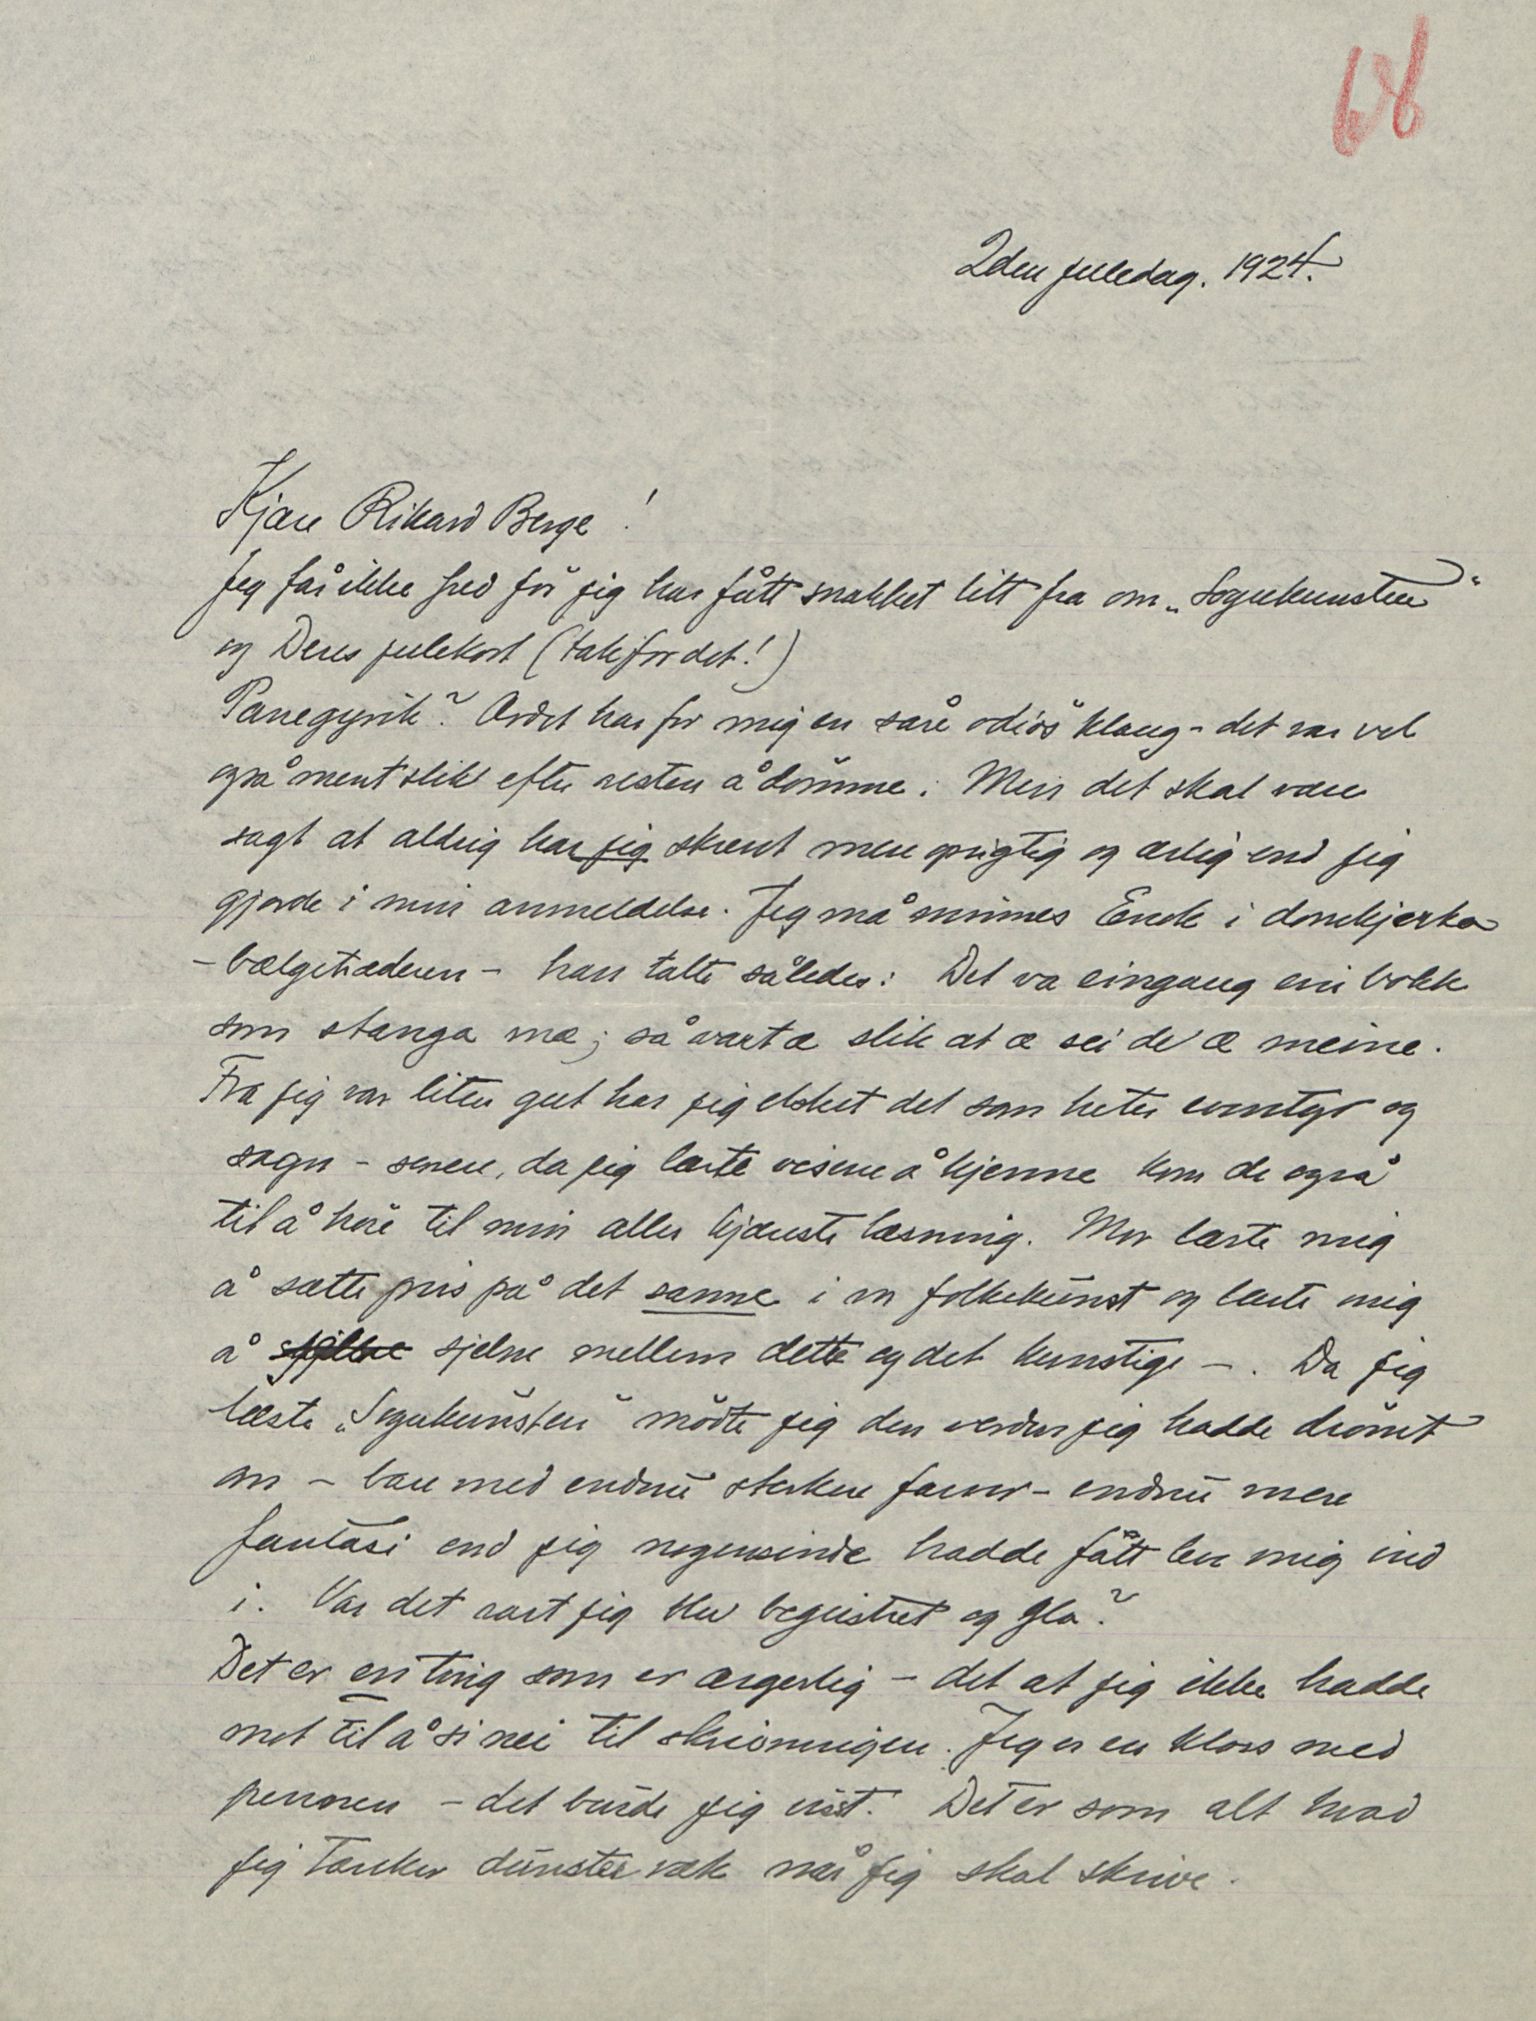 68
2den juledag. 1924.
Kjære Rikard Berge!
Jeg får ikke fred för jeg har fått snakket litt fra om „Sognkunsten"
og Deres julekort (tak for det!)
Panegyrik? Ordet har for mig en såre odiös klang - det var vel
også ment slik efter resten å dömme. Men det skal være
sagt at aldrig har jeg skrevet mere oprigtig og ærlig end jeg
gjorde i min anmeldelse. Jeg må minnes Enok i domkjerka
- bælgetræderen - han talte således: Det va eingang ein bokk
som stanga mæ; så vart æ slik at æ sei de æ meine.
Fra jeg var liten gut har jeg elsket det som heter eventyr og
sagn - senere, da jeg lærte visene å kjenne kom de også
til å höre til min aller kjæreste læsning. Mor lærte mig
å sætte pris på det sanne i en folkekunst og lærte mig
å sjelne mellem dette og det kunstige -. Da jeg
læste „Sognkunsten" mötte jeg den verden jeg hadde drömt
om - bare med endnu sterkere farver - endnu mere
fantasi end jeg nogensinde hadde fått lev mig ind
i. Var det rart jeg blev begeistret og gla?
Det er en ting som er ærgerlig - det at jeg ikke hadde
mot til å si nei til skrivningen. Jeg er en kloss med
pennen - det burde jeg visst. Det er som alt hvad
jeg tænker dunster væk når jeg skal skrive.